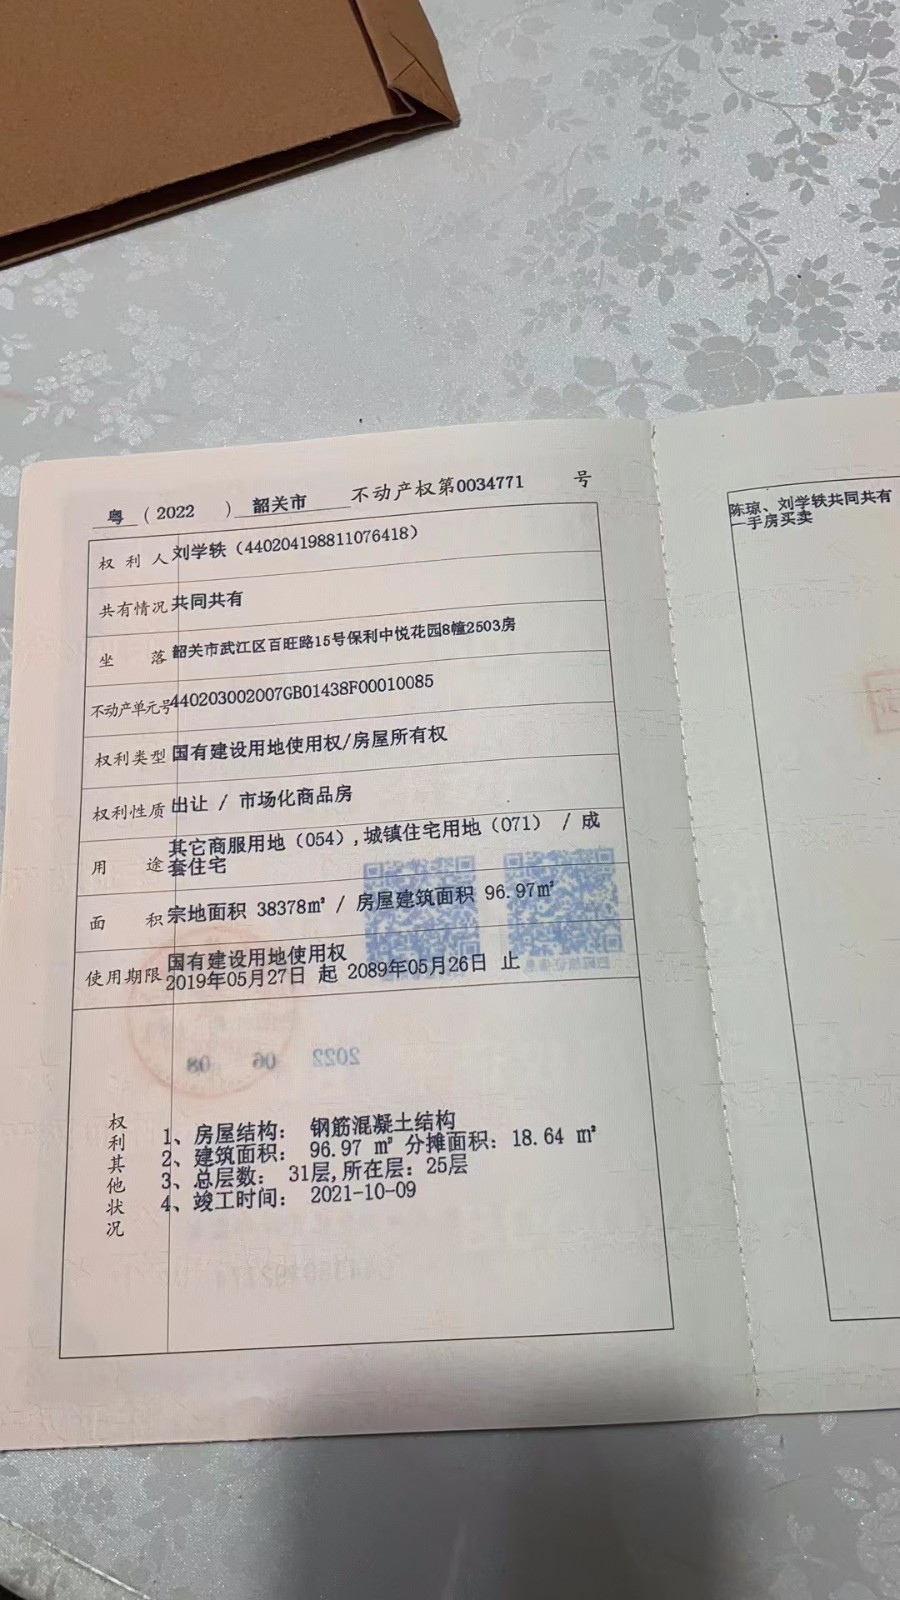 粤（2022）韶关市 不动产权第0034771 号
权利人 刘学轶（440204198811076418）
共有情况 共同共有
坐落 韶关市武江区百旺路15号保利中悦花园8幢2503房
不动产单元号 440203002007GB01438F00010085
权利类型 国有建设用地使用权/房屋所有权
权利性质 出让 / 市场化商品房
用途 其它商服用地（054）,城镇住宅用地（071） / 成
套住宅
面积 宗地面积 38378㎡ / 房屋建筑面积 96.97㎡
使用期限 国有建设用地使用权
2019年05月27日 起 2089年05月26日 止
2022 06 08
权利其他状况
1、房屋结构： 钢筋混凝土结构
2、建筑面积： 96.97 ㎡ 分摊面积：18.64 ㎡
3、总层数： 31层,所在层：25层
4、竣工时间： 2021-10-09
陈琼、刘学轶共同共有
一手房买卖